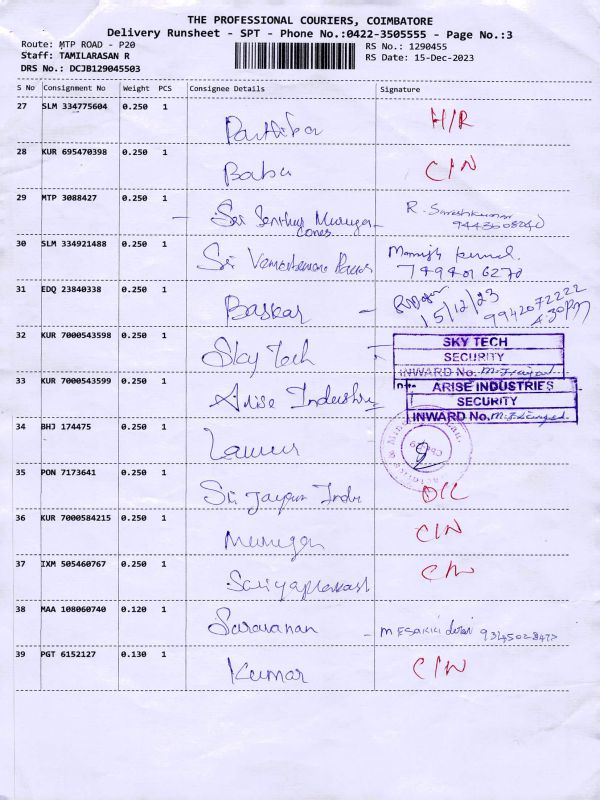 THE PROFESSIONAL COURIERS, COIMBATORE
Delivery Runsheet - SPT - Phone No.:0422-3505555 - Page No.:3
Route: MTP ROAD - P20
Staff: TAMILARASAN R
DRS No.: DCJB129045503
RS No.: 1290455
RS Date: 15-Dec-2023
S No Consignment No Weight PCS Consignee Details Signature
27 SLM 334775604 0.250 1 H/R
28 KUR 695470398 0.250 1 Babu C/N
29 MTP 3088427 0.250 1 Sri Senthur Murugan R. Sureshkumar
Cones
30 SLM 334921488 0.250 1 Sri
7494016270
31 EDQ 23840338 0.250 1 Baskar - 15/12/23 9942072222
4.30pm
32 KUR 7000543598 0.250 1 Sky Tech
SKY TECH
SECURITY
INWARD No.
33 KUR 7000543599 0.250 1 Arise Industry
ARISE INDUSTRIES
SECURITY
INWARD No.
34 BHJ 174475 0.250 1
35 PON 7173641 0.250 1 Sri Indu D/L
36 KUR 7000584215 0.250 1 Murugan C/N
37 IXM 505460767 0.250 1 C/N
38 MAA 108060740 0.120 1 Saravanan - M ESAKKI
39 PGT 6152127 0.130 1 Kumar C/N